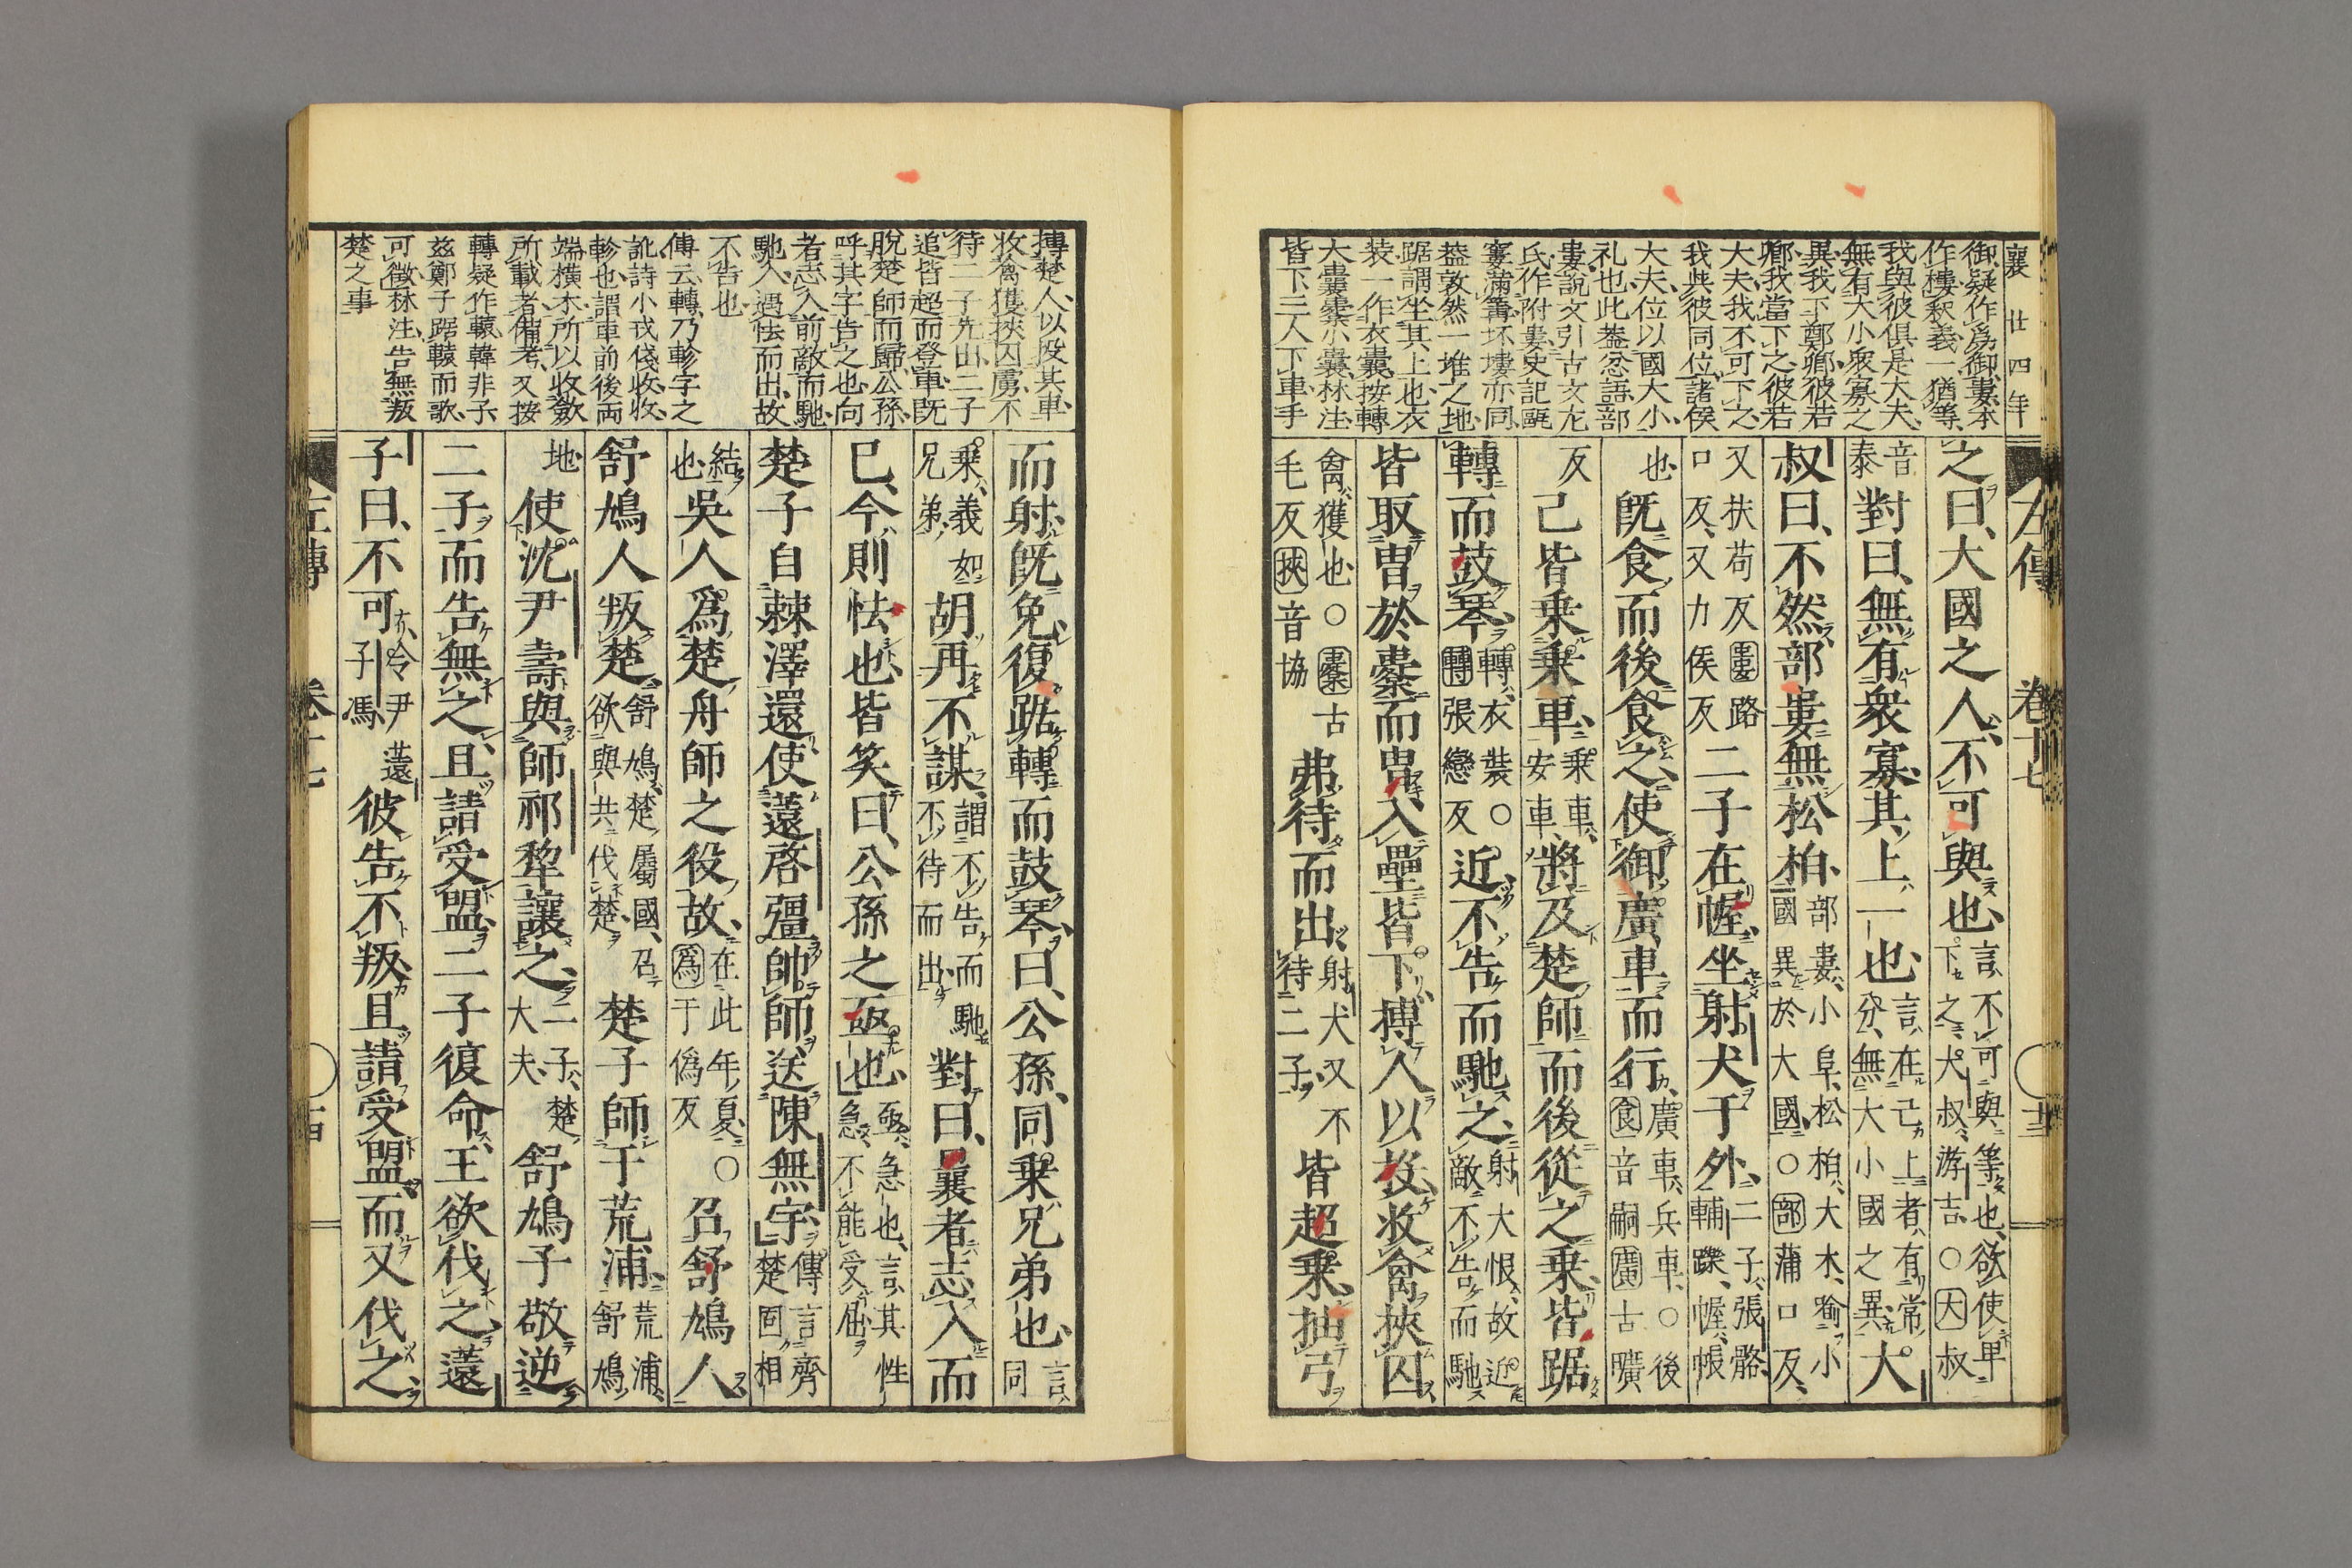 襄廿四年
御疑作爲御婁本
作㙡釈義一猶等
我與彼俱是大夫
無有大小衆寡之
異我下鄭卿彼若
卿我當下之彼若
大夫我不可下之
我與彼同位諸侯
大夫位以國大小
礼也此葢忿語部
婁説文引古文左
氏作附婁史記甌
窶滿篝坏塿亦同
葢敦然一堆之地
踞謂坐其上也衣
装一作衣囊按轉
大囊櫜小囊林注
皆下三人下車手
之曰大國之人不可與也言不可與等也欲使卑下之犬叔游吉○大叔
音泰對曰無有衆寡其上一也言在己上者有常分無大小國之異大
叔曰不然部婁無松柏部婁小阜松柏大木喩小國異於大國○部蒲口反
又扶苟反婁路口反又力侯反二子在幄坐射犬于外二子張骼輔躒幄帳
也既食而後食之使御廣車而行廣車兵車○後食音嗣廣古曠
反己皆乗乗車乗車安車將及楚師而後從之乗皆踞
轉而鼓琴轉衣裝○轉張戀反近不告而馳之射犬恨故近敵不告而馳
皆取冑於櫜而冑入壘皆下搏人以投收禽挾囚
禽獲也○櫜古毛反挾音協弗待而出射犬又不待二子皆超乗抽弓
左傳　卷十七
搏楚人以投其車
收禽獲挾囚虜不
待二子先出二子
追皆超而登車既
脫楚師而歸公孫
呼其字告之也向
者志入前敵而馳
馳入過怯而出故
不告也
傳云轉乃軫字之
訛詩小戎俴收收
軫也謂車前後両
端横木所以收斂
所載者備考又按
轉疑作轅韓非子
玆鄭子踞轅而歌
可徴林注告無叛
楚之事
而射既免復踞轉而鼓琴曰公孫同乗兄弟也言同
乗義如兄弟胡再不謀謂不告而馳不待而出對曰曩者志入而
已今則怯也皆笑曰公孫之亟也亟急也言其性急不能受屈
楚子自棘澤還使薳啓彊帥師送陳無宇傳言齊楚固相
結也吳人爲楚舟師之役故在此年夏○爲于僞反召舒鳩人
舒鳩人叛楚舒鳩楚屬國召欲與共伐楚楚子師于荒浦荒浦舒鳩
地使沈尹壽與師祁犂讓之二子楚大夫舒鳩子敬逆
二子而告無之且請受盟二子復命王欲伐之薳
子曰不可令尹薳子馮彼告不叛且請受盟而又伐之
左傳　卷十七